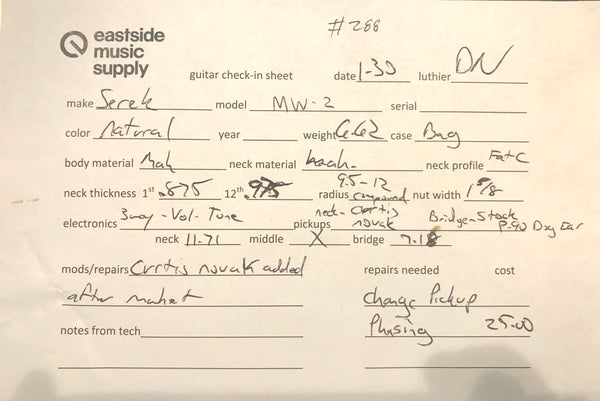 #288
eastside
music
supply
guitar check-in sheet date 1-30 luthier DN
make Serek model MW-2 serial
color Natural year weight 6.62 case Bag
body material Mah neck material neck profile Fat C
neck thickness 1st .875 12th .975 radius 9.5-12 compound nut width 1 5/8
electronics 3way-Vol-Tone pickups neck-Curtis novak Bridge-Stock P-90 Dog Ear
neck 11.71 middle X bridge 7.18
mods/repairs Curtis novak added repairs needed cost
after market Change Pickup
notes from tech Phasing 25.00